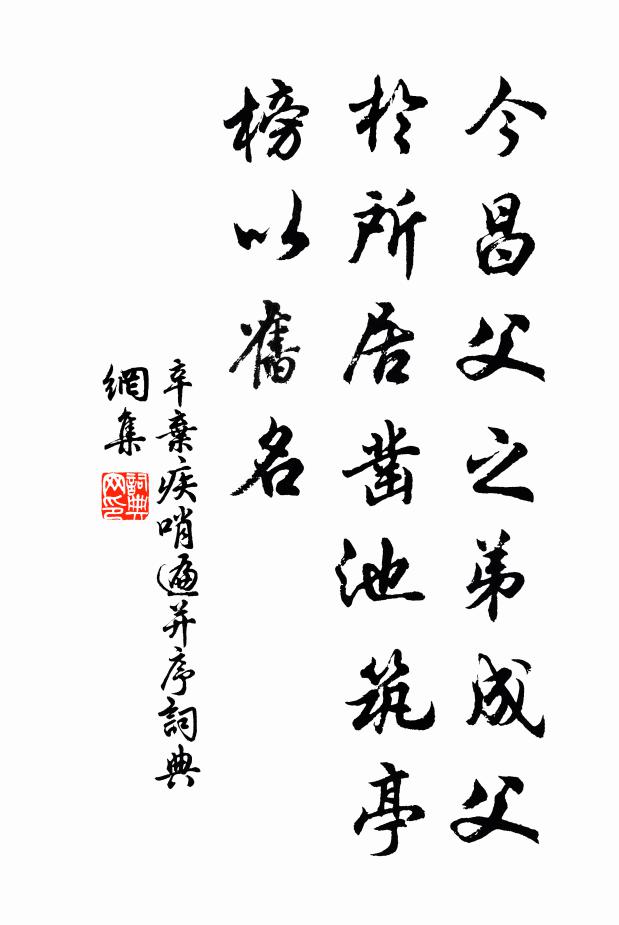 今昌父之弟成父
於所居凿池筑亭
榜以舊名
辛棄疾哨遍并序詞典
網集
詞典
网印